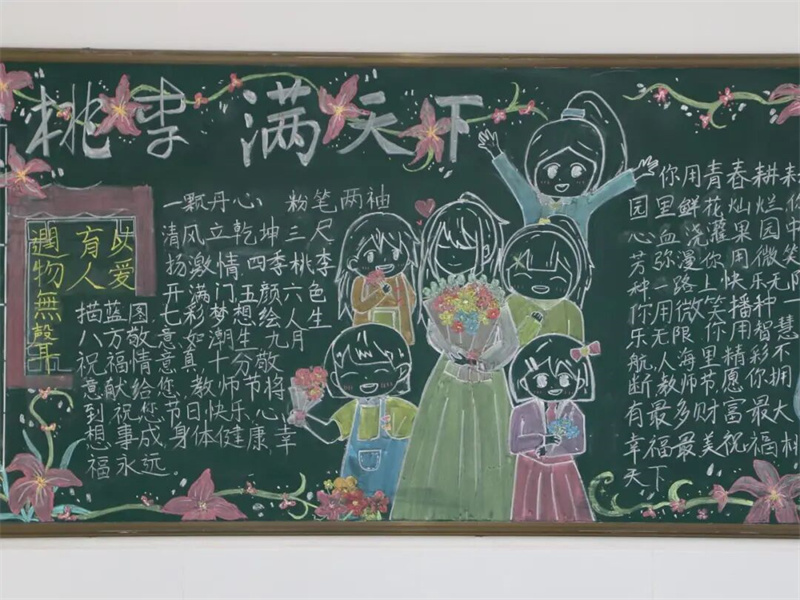 桃李满天下
以爱
有人
週物無聲
一颗丹心 粉笔两袖
清风立乾坤三尺
扬激情四季桃李
开满门五颜六色
描蓝图七彩梦想绘人生
八方敬意如潮生九月
祝福情意真,十分敬
意献给您,教师节将
到祝您节日快乐,心
想事成,身体健康,幸
福永远。
你用青春耕耘
园里鲜花灿烂你
心血浇灌果园中
芳弥漫你用微笑
种一路上快乐无
你用微笑播种
乐无限你用智慧
航人海里精彩不
断教师节愿你拥
有最多财富最大
幸福最美祝福桃
天下